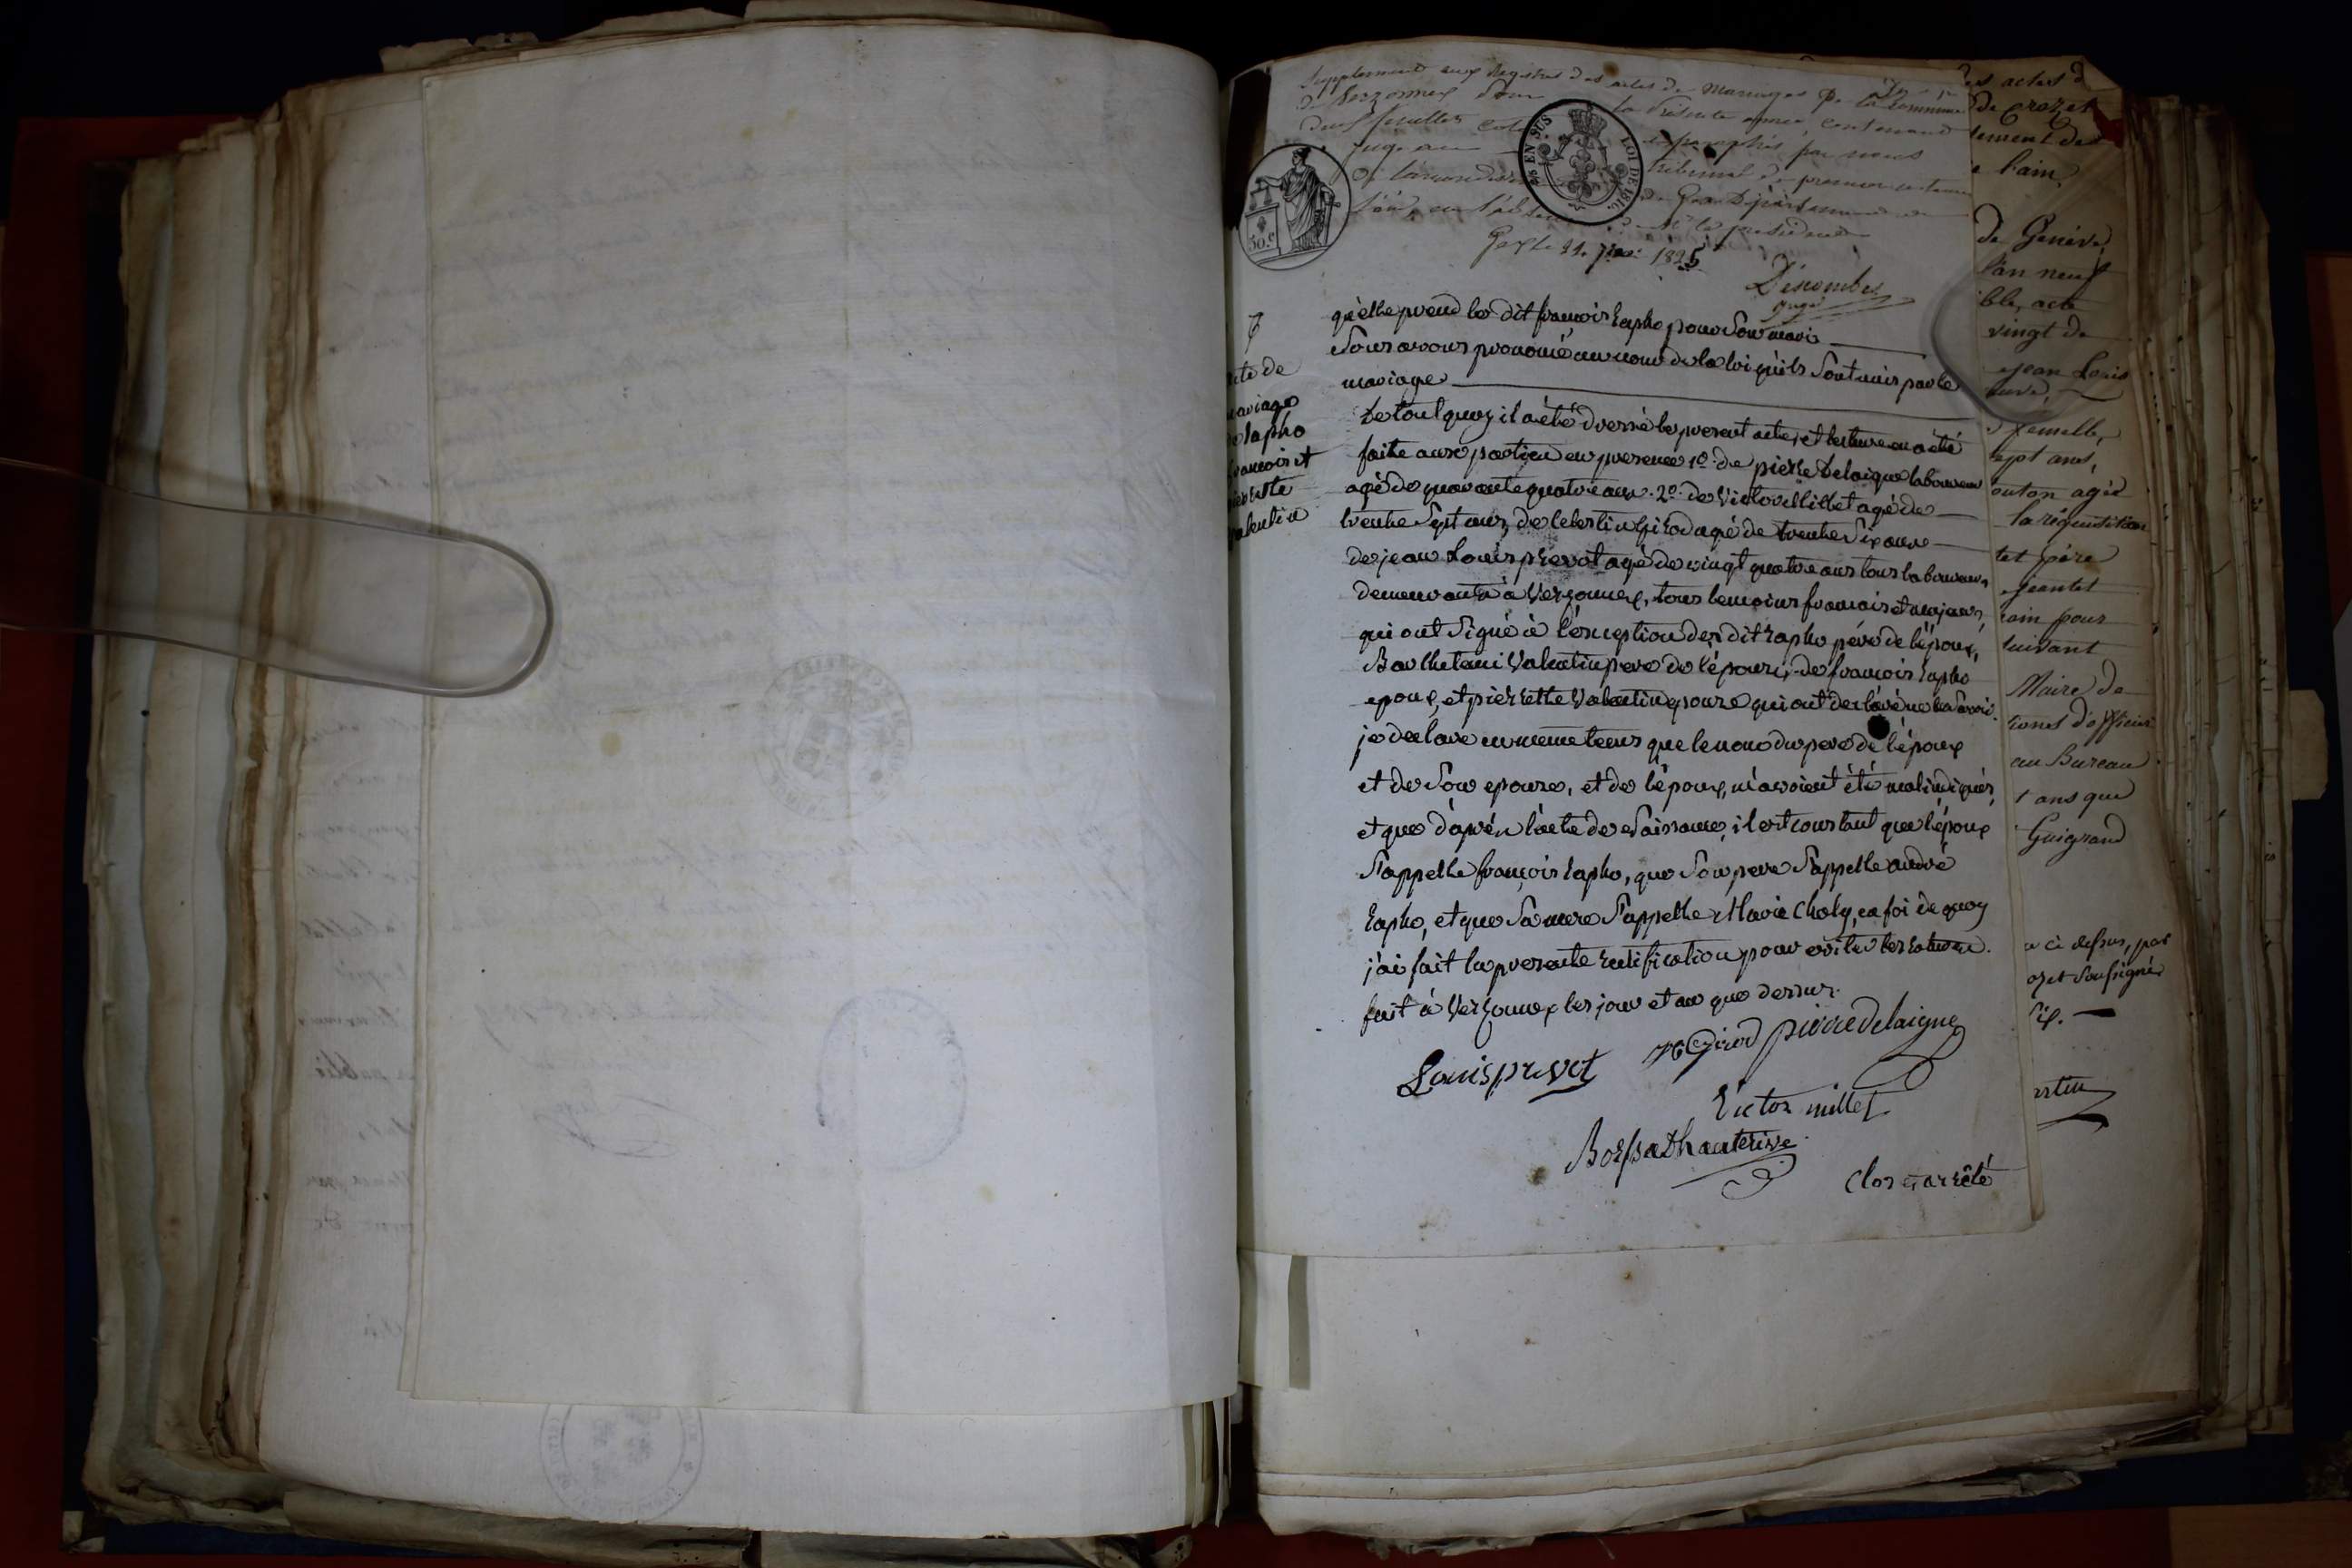 Supplement aux Registres des actes de Mariages de la commune
de Versonnex Pour la Présente année, contenant
deux feuillets cotés et paraphés par nous
juge au Tribunal de premiere instance
de l'arrondissement de Gex Département de
l'ain, en l'absence de Mr le president
Gex le 21. 7bre 1825
Descombes
juge
48 EN SUS
LOI DE 1816.
50.c
acte de
mariage
de Rapho
francois et
pierrette
valentin
qu'elle prend le dit francois Rapho pour Son mari
Nous avons prononcé au nom de la loi qu'ils Sont unis par le
mariage
De tout quoy il a été dressé le present acte, et lecture en a été
faite aux parties en presence 1º. de pierre Delaigue laboureur
agé de quarante quatre ans. 2º. de Victor Millet agé de
trente Sept ans, de Celestin Girod agé de trente Six ans
de jean Louis prevot agé de vingt quatre ans tous laboureurs
demeurants à Versonnex, tous temoins francais et majeurs,
qui ont Signé à l'exception des dit Rapho pére de l'époux,
Barthelemi Valentin pere de l'épouse, de francois Rapho
epoux, et pierrette Valentin epouse qui ont declaré ne le Savoir.
je declare en meme tems que le nom du pere de l'époux
et de Son epouse, et de l'époux, m'avoient été mal indiqués,
et que d'aprés l'acte de Naissance, il est constant que l'époux
S'appelle françois Rapho, que Son pere S'appelle andré
Rapho, et que Sa mere S'appelle Marie Choly, en foi de quoy
j'ai fait la presente rectification pour eviter les ratures.
fait à Versonnex les jour et an que dessus.
Louis prevot
Girod
pierre delaigue
Victor millet
Borssat Dhauterive
Clos et arrêté
des actes d
de Crozet
l'ain
de Genève,
l'an neuf
ble, acte
vingt de
jean Louis
femelle,
sept ans,
outon agée
la réquisition
tet père
jeantet
ain pour
suivant
Maire de
tions d'officier
au Bureau
t ans que
Guigrand
ci dessus, par
ozet Soussigné